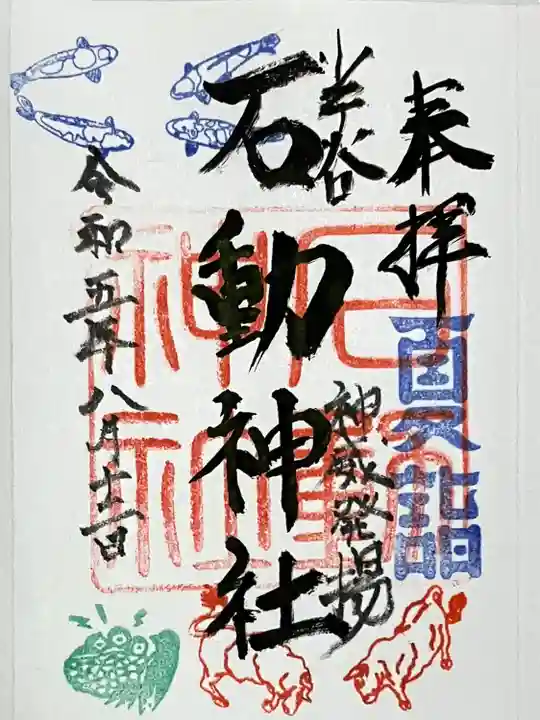 奉拝
夏詣
半谷
神威発揚
石動神社
石動神社
令和五年八月十一日